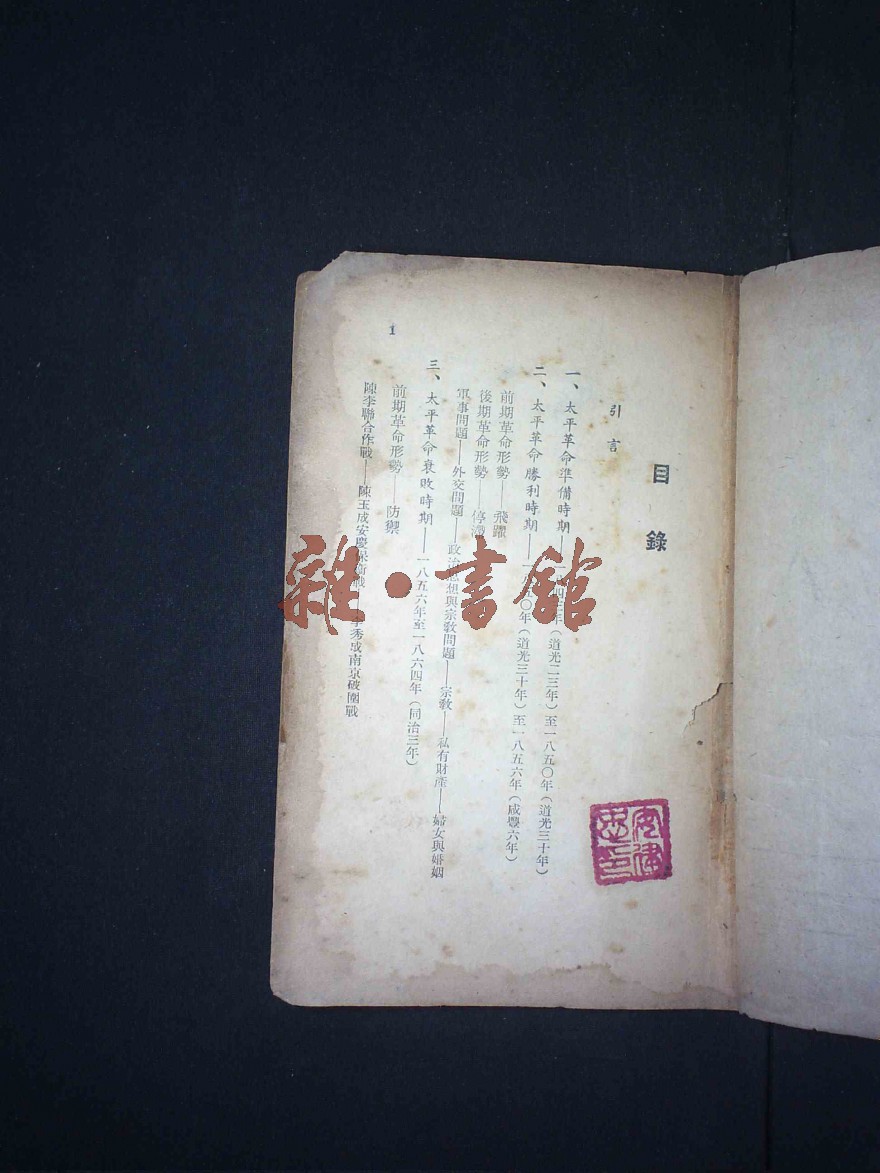 目錄
引言
一、太平革命準備時期——一八四三年(道光二三年)至一八五〇年(道光三十年)
二、太平革命勝利時期——一八五〇年(道光三十年)至一八五六年(咸豐六年)
前期革命形勢——飛躍
後期革命形勢——停滯
軍事問題——外交問題——政治思想與宗教問題——宗教——私有財產——婦女與婚姻
三、太平革命衰敗時期——一八五六年至一八六四年(同治三年)
前期革命形勢——防禦
陳李聯合作戰——陳玉成安慶保衛戰——李秀成南京破圍戰
1
雜·書館